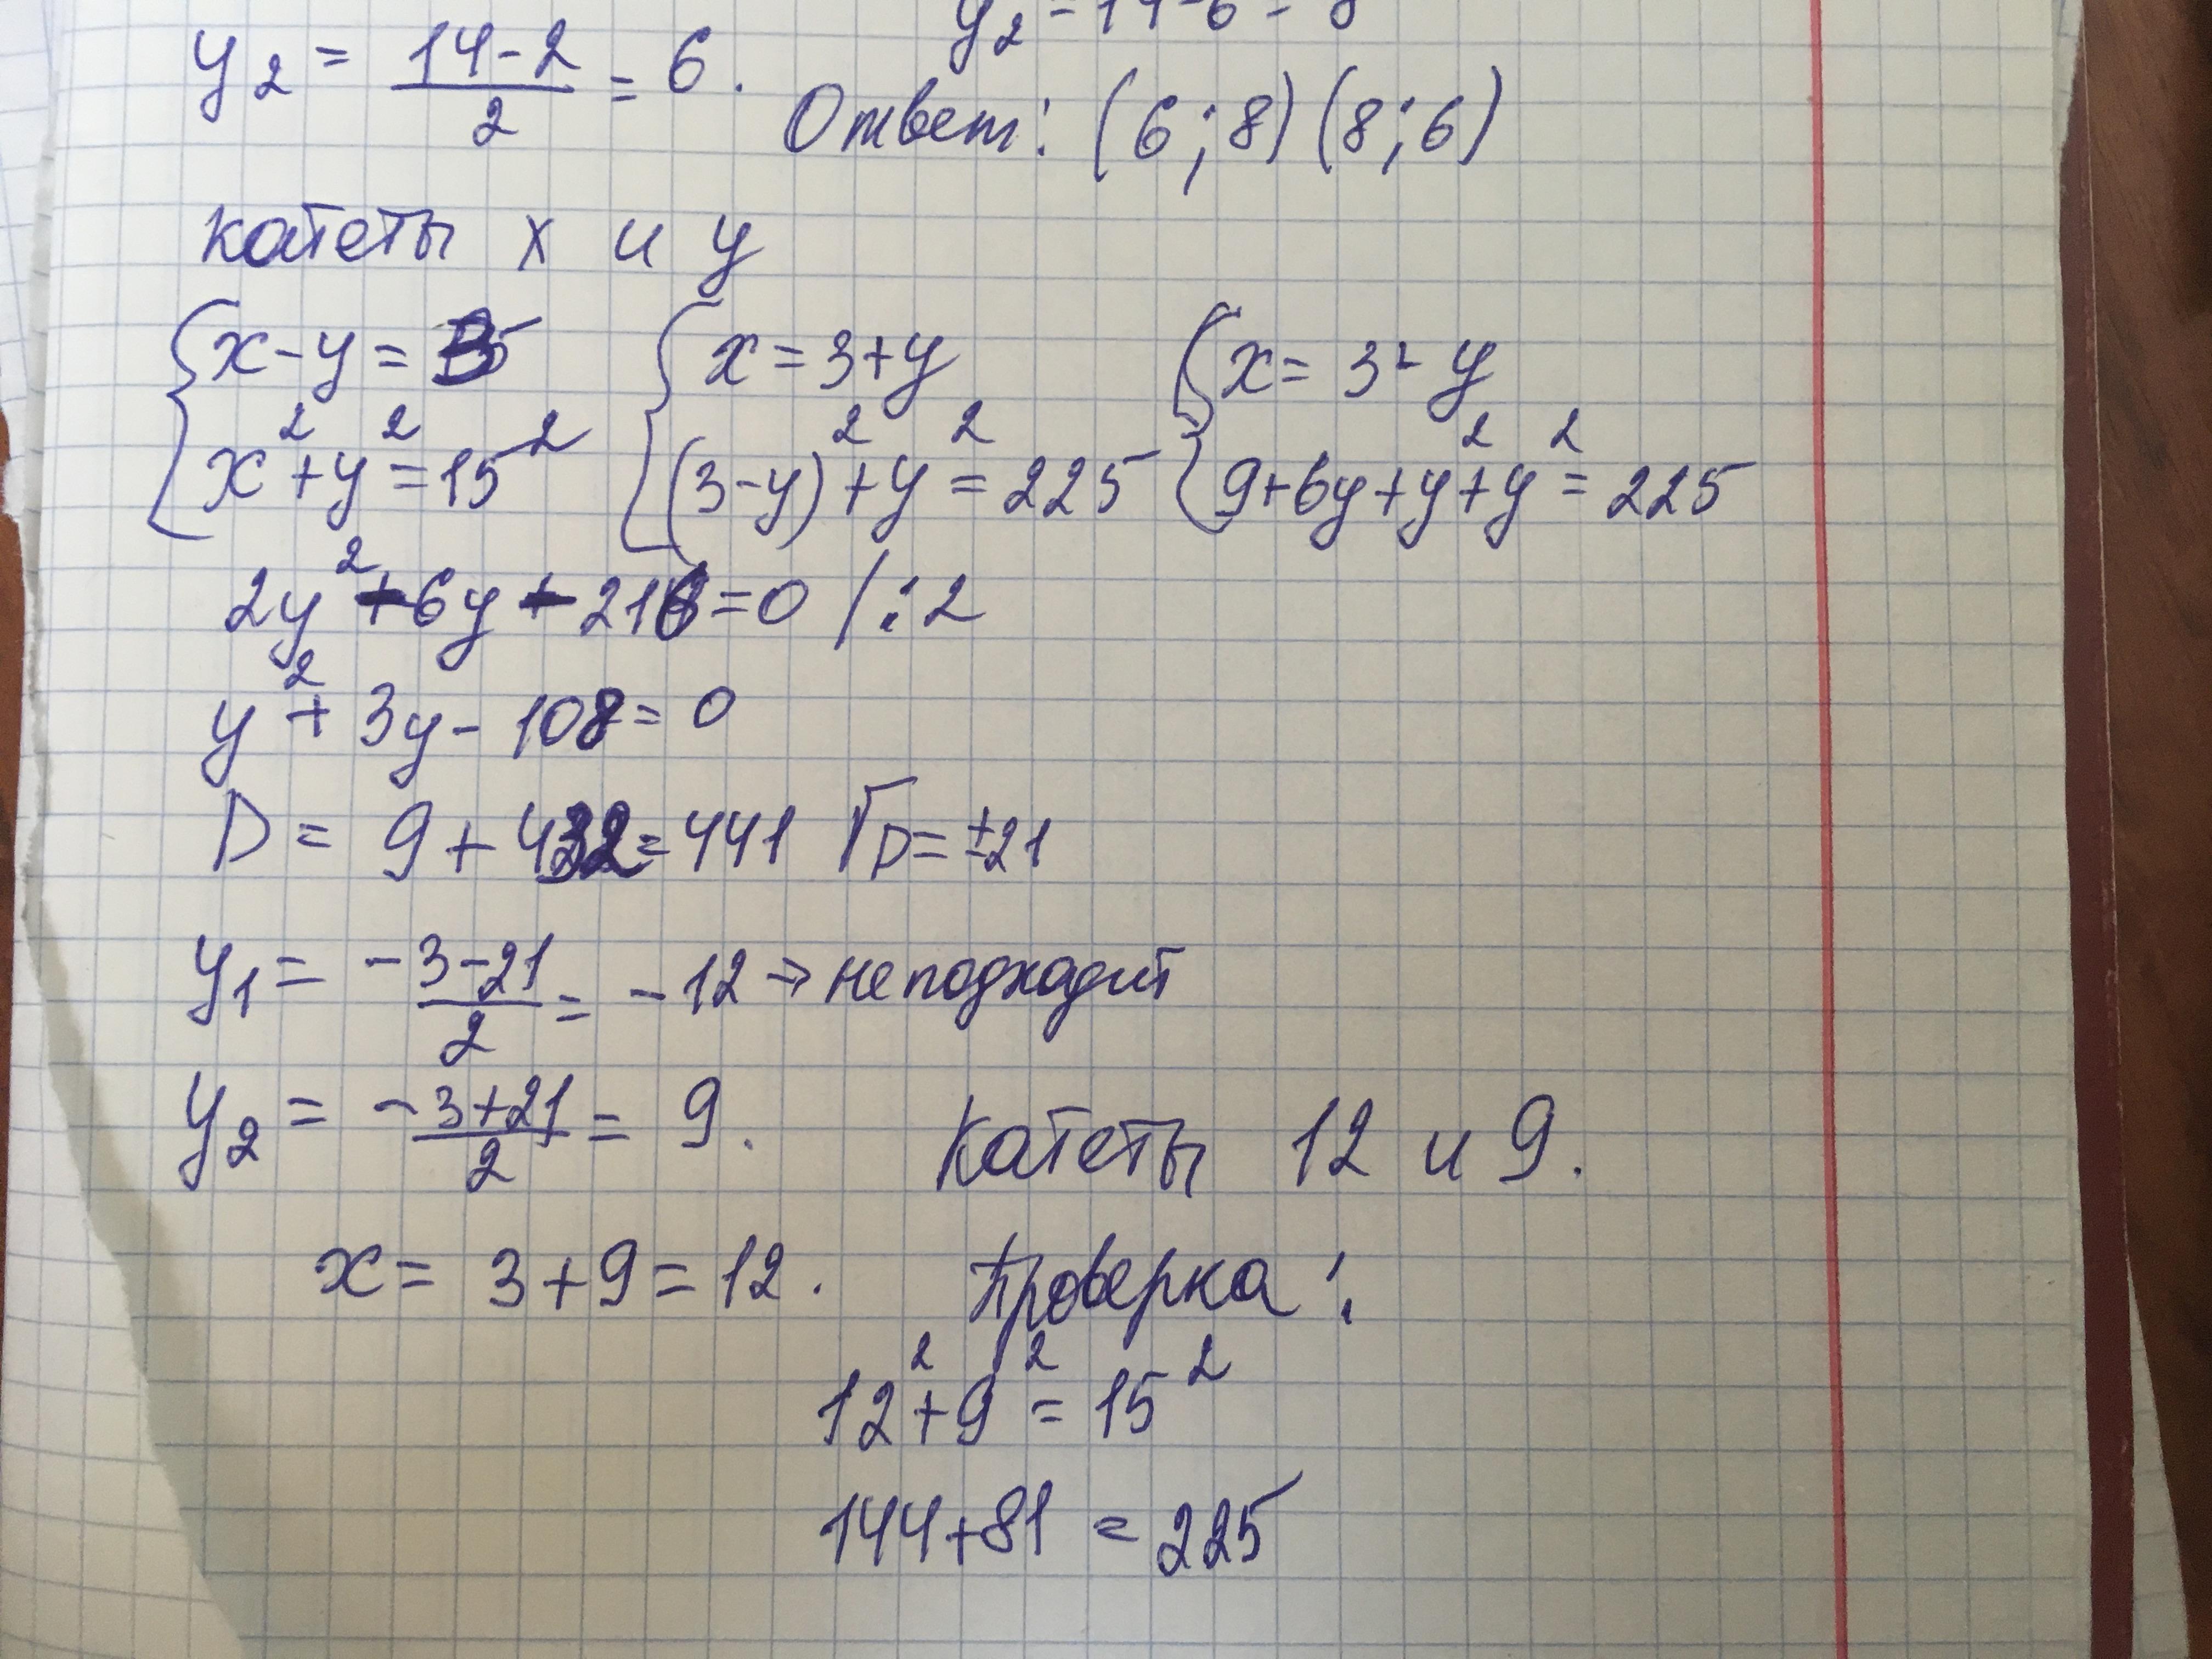 y₂ = 14-6 = 8
y₂ = (14-2)/2 = 6.
Ответ: (6;8) (8;6)
катеты x и y
{x-y=3 {x=3+y {x=3-y
{x²+y²=15² {(3-y)²+y²=225 {9+6y+y²+y²=225
2y²+6y-216=0 /:2
y²+3y-108=0
D=9+432=441 √D=±21
y₁=(-3-21)/2=-12→не подходит
y₂=(-3+21)/2=9.
Катеты 12 и 9.
x=3+9=12. Проверка:
12²+9²=15²
144+81=225